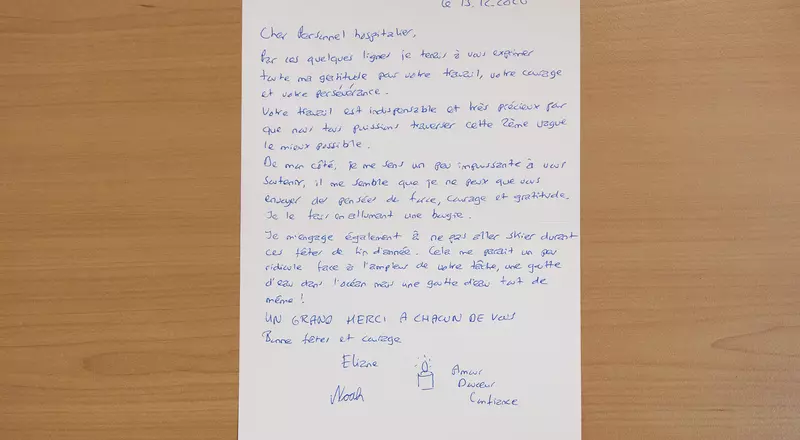 le 13.12.2020
Cher Personnel hospitalier,
Par ces quelques lignes je tenais à vous exprimer
toute ma gratitude pour votre travail, votre courage
et votre persévérance.
Votre travail est indispensable et très précieux pour
que nous tous puissions traverser cette 2ème vague
le mieux possible.
De mon côté, je me sens un peu impuissante à vous
soutenir, il me semble que je ne peux que vous
envoyer des pensées de force, courage et gratitude.
Je le fais en allumant une bougie.
Je m'engage également à ne pas aller skier durant
ces fêtes de fin d'année. Cela me paraît un peu
ridicule face à l'ampleur de votre tâche, une goutte
d'eau dans l'océan mais une goutte d'eau tout de
même !
UN GRAND MERCI A CHACUN DE VOUS
Bonne fêtes et courage
Eliane
Noah
Amour
Douceur
Confiance